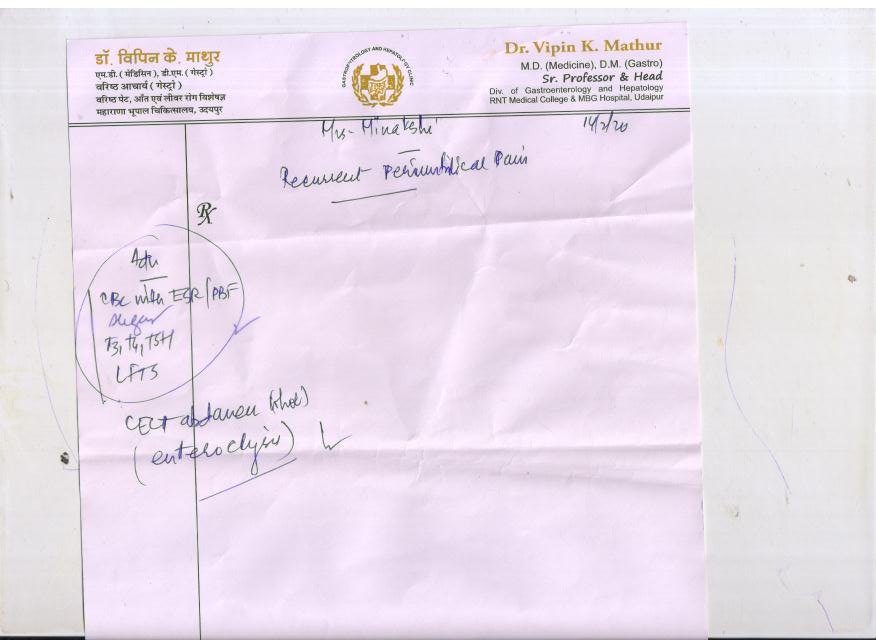 डॉ. विपिन के. माथुर
एम.डी. ( मेडिसिन ), डी.एम. ( गेस्ट्रो )
वरिष्ठ आचार्य ( गेस्ट्रो )
वरिष्ठ पेट, आँत एवं लीवर रोग विशेषज्ञ
महाराणा भूपाल चिकित्सालय, उदयपुर
GASTROENTEROLOGY AND HEPATOLOGY CLINIC
Dr. Vipin K. Mathur
M.D. (Medicine), D.M. (Gastro)
Sr. Professor & Head
Div. of Gastroenterology and Hepatology
RNT Medical College & MBG Hospital, Udaipur
Mrs- Minakshi
14/2/20
Recurrent Periumbilical Pain
Rx
Adv
CBC with ESR/PBF
Sugar
T3, T4, TSH
LFTS
CECT abdomen
(enteroclysis)